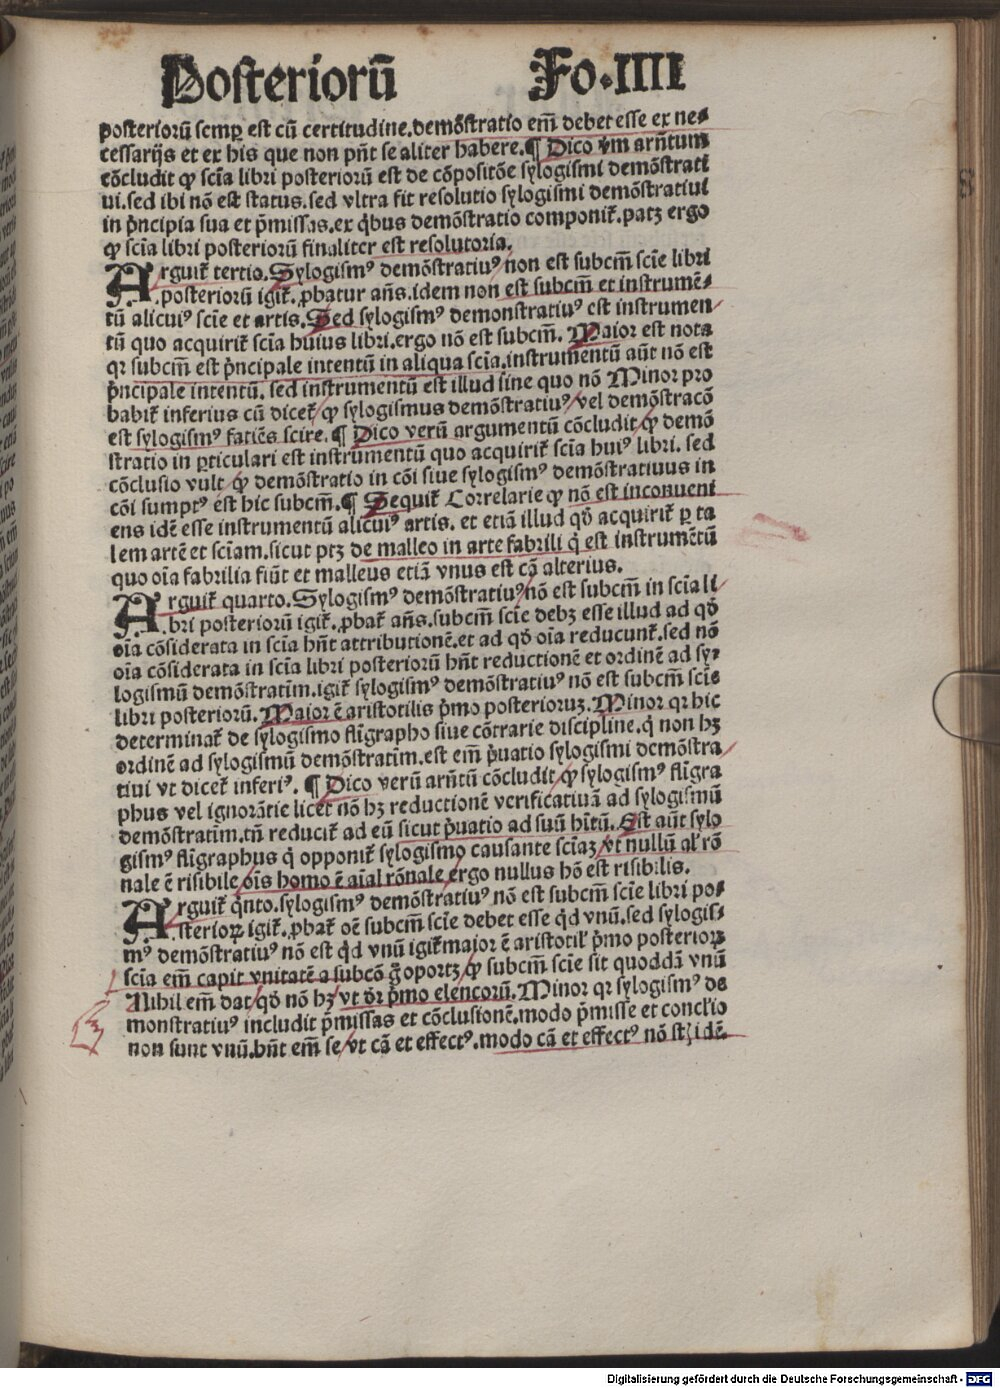 Posteriorū Fo.IIII
posteriorū semꝑ est cū certitudine.demōstratio em̄ debet esse ex ne⸗
cessarijs et ex his que non pn̄t se aliter habere.¶ Dico vm̄ arn̄tum
cōcludit ꝙ scīa libri posteriorū est de cōpositōe sylogismi demōstrati
ui.sed ibi nō est status.sed vltra fit resolutio sylogismi demōstratiui
in pͥncipia sua et p̄missas.ex qͥbus demōstratio componiꝉ.patꝫ ergo
ꝙ scīa libri posteriorū finaliter est resolutoria.
Arguiꝉ tertio.Sylogismꝰ demōstratiuꝰ non est subcm̄ scīe libri
posteriorū igiꝉ.ꝓbatur an̄s.idem non est subcm̄ et instrumē⸗
tū alicuiꝰ scīe et artis.Sed sylogismꝰ demonstratiuꝰ est instrumen
tū quo acquiriꝉ scīa huius libri.ergo nō est subcm̄. Maior est nota
qꝛ subcm̄ est pͥncipale intentū in aliqua scīa.instrumentū aūt nō est
pͥncipale intentū. sed instrumentū est illud sine quo nō Minor pro
babiꝉ inferius cū diceꝉ ꝙ sylogismus demōstratiuꝰ vel demōstracō
est sylogismꝰ faciēs scire.¶ Dico verū argumentū cōcludit ꝙ demō
stratio in ꝑticulari est instrumentū quo acquiriꝉ scīa huiꝰ libri. sed
cōclusio vult ꝙ demōstratio in cōi siue sylogismꝰ demōstratiuus in
cōi sumptꝰ est hic subcm̄.¶ Sequiꝉ Correlarie ꝙ nō est inconueni
ens idē esse instrumentū alicuiꝰ artis. et etiā illud qḋ acquiriꝉ ꝑ ta
lem artē et scīam.sicut ptꝫ de malleo in arte fabrili qͥ est instrumētū
quo oīa fabrilia fiūt et malleus etiā vnus est cā alterius.
Arguiꝉ quarto.Sylogismꝰ demōstratiuꝰ nō est subcm̄ in scīa li
bri posteriorū igiꝉ.ꝓbaꝉ an̄s.subcm̄ scīe debꝫ esse illud ad qḋ
oīa cōsiderata in scīa hn̄t attributionē.et ad qḋ oīa reducunꝉ.sed nō
oīa cōsiderata in scīa libri posteriorū hn̄t reductionē et ordinē ad sy⸗
logismū demōstratim̄.igiꝉ sylogismꝰ demōstratiuꝰ nō est subcm̄ scīe
libri posteriorū. Maior ē aristotilis pͥmo posterioruꝫ. Minor qꝛ hic
determinaꝉ de sylogismo fl̄igrapho siue cōtrarie discipline.qͥ non hꝫ
ordinē ad sylogismū demōstratim̄.est em̄ pͥuatio sylogismi demōstra
tiui vt diceꝉ inferiꝰ. ¶ Dico verū arn̄tū cōcludit ꝙ sylogismꝰ fl̄igra
phus vel ignorātie licet nō hꝫ reductionē verificatiuā ad sylogismū
demōstratim̄.tn̄ reduciꝉ ad eū sicut pͥuatio ad suū hītū. Est aūt sylo
gismꝰ fl̄igraphus qͥ opponiꝉ sylogismo causante scīaꝫ vt nullū aīal rō
nale ē risibile oīs homo ē aīal rōnale ergo nullus hō est risibilis.
Arguiꝉ qͥnto.sylogismꝰ demōstratiuꝰ nō est subcm̄ scīe libri po⸗
steriorꝝ igiꝉ.ꝓbaꝉ oē subcm̄ scīe debet esse qͥd vnū.sed sylogis⸗
mꝰ demōstratiuꝰ nō est qͥd vnū igiꝉ maior ē aristotil̓ pͥmo posteriorꝝ
scīa em̄ capit vnitatē a subcō g̊ oportꝫ ꝙ subcm̄ scīe sit quoddā vnū
Nihil em̄ dat qḋ nō hꝫ vt dr̄ pͥmo elencorū. Minor qꝛ sylogismꝰ de
monstratiuꝰ includit p̄missas et cōclusionē.modo p̄misse et concl̓io
non sunt vnū.hn̄t em̄ se vt cā et effectꝰ.modo cā et effectꝰ nō st̄ idē.
Digitalisierung gefördert durch die Deutsche Forschungsgemeinschaft - DFG